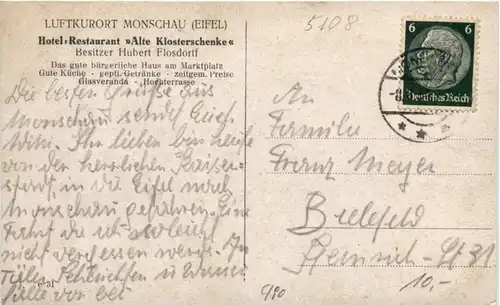 LUFTKURORT MONSCHAU (EIFEL)
Hotel-Restaurant »Alte Klosterschenke«
Besitzer Hubert Flosdorff
Das gute bürgerliche Haus am Marktplatz
Gute Küche - gepfl. Getränke - zeitgem. Preise
Glasveranda - Hochterrasse
Die besten Grüße aus
Monschau sendet Euch
Willi. Ihr Lieben bin heute
von der herrlichen Kaiser-
stadt, in die Eifel nach
Monschau gefahren. Eine
Fahrt die ich so leicht
nicht vergessen werde. In
vor
5108
6 6
Deutsches Reich
-8.
An
Familie
Franz Meyer
Bielefeld
Heinrich-St 31
10.-
9/90